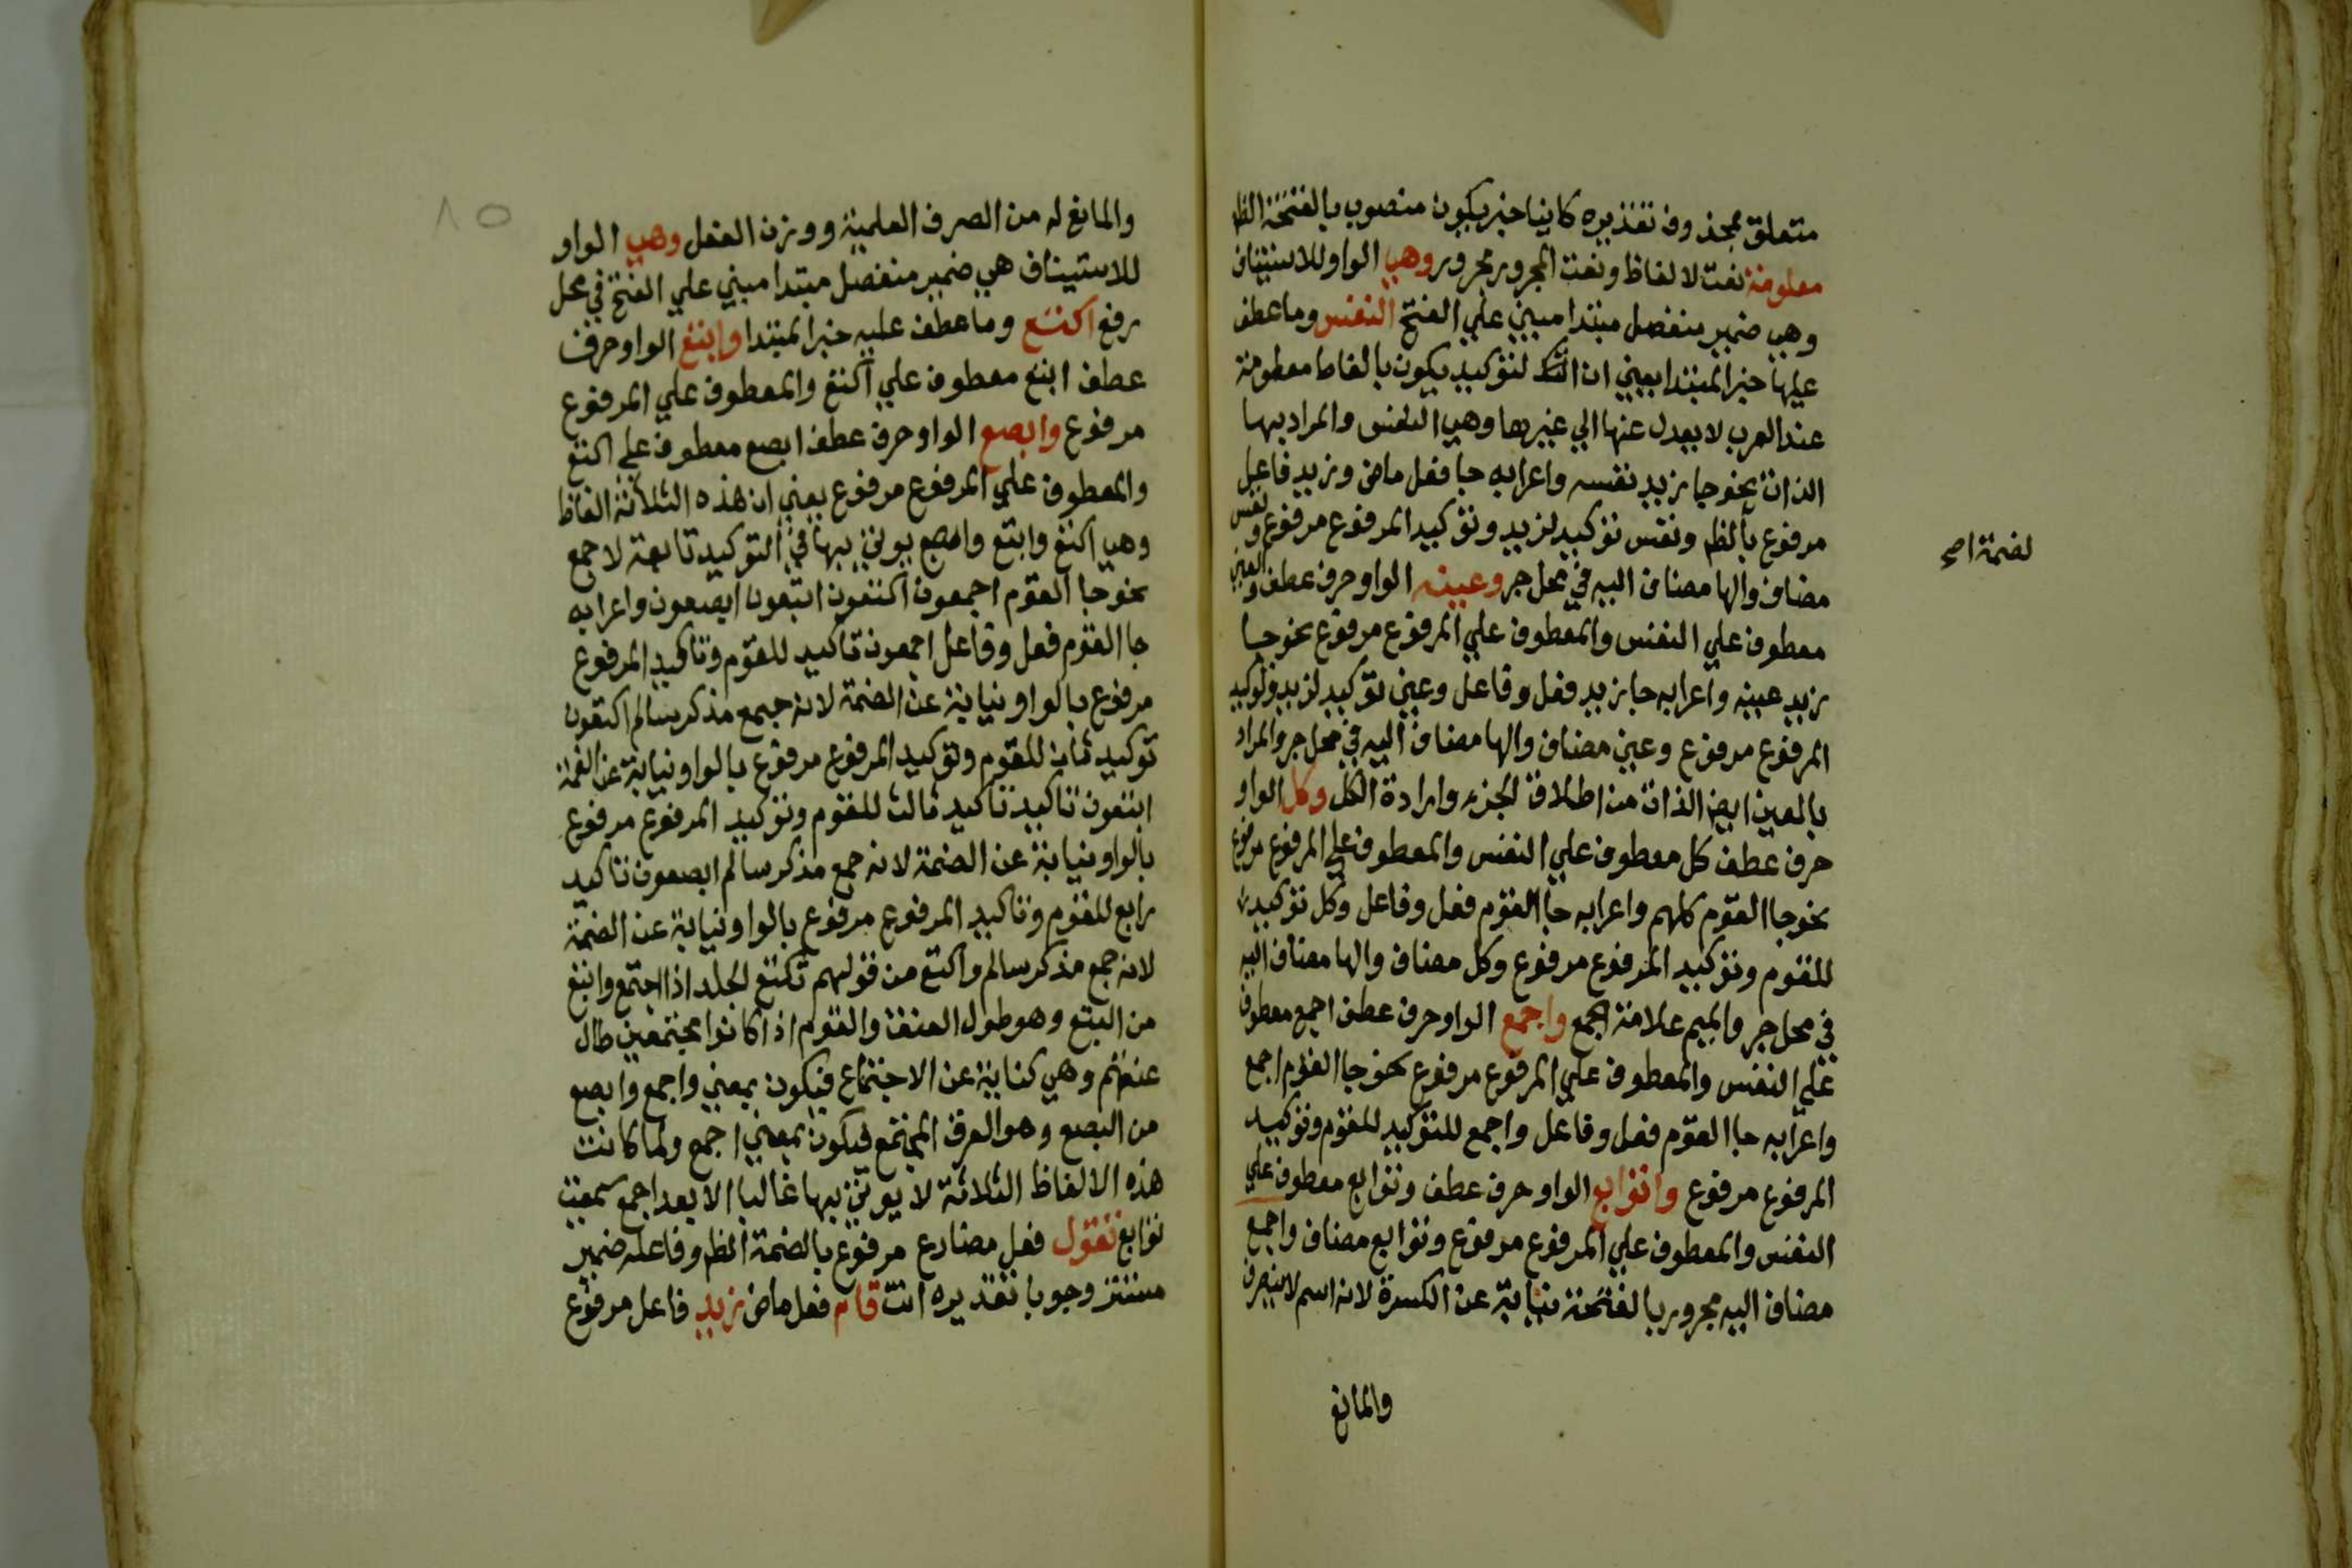 متعلق بمحذوف تقديره كاينا خبر يكون منصوب بالفتحة الظ
معلومة نعت لالفاظ ونعت المجرور مجرور وهي الواو للاستيناف
وهي ضمير منفصل مبتدا مبني علي الفتح النفس وما عطف
عليها خبر المبتدا يعني ان التوكيد يكون بالفاظ معلومة
عند العرب لا يعدل عنها الي غيرها وهي النفس والمراد بها
الذات نحو جا زيد نفسه واعرابه جا فعل ماض وزيد فاعل
مرفوع بالظ ونفس توكيد لزيد وتوكيد المرفوع مرفوع ونفس
لضمة اصح
مضاف والها مضاف اليه في محل جر وعينه الواو حرف عطف والعين
معطوف علي النفس والمعطوف علي المرفوع مرفوع نحو جا
زيد عينه واعرابه جا زيد فعل وفاعل وعين توكيد لزيد وتوكيد
المرفوع مرفوع وعين مضاف والها مضاف اليه في محل جر والمراد
بالعين ايض الذات من اطلاق الجزء وارادة الكل وكل الواو
حرف عطف كل معطوف علي النفس والمعطوف علي المرفوع مرفوع
نحو جا القوم كلهم واعرابه جا القوم فعل وفاعل وكل توكيد
للقوم وتوكيد المرفوع مرفوع وكل مضاف والها مضاف اليه
في محل جر والميم علامة الجمع واجمع الواو حرف عطف اجمع معطوف
علي النفس والمعطوف علي المرفوع مرفوع نحو جا القوم اجمع
واعرابه جا القوم فعل وفاعل واجمع للتوكيد للقوم وتوكيد
المرفوع مرفوع واتوابع الواو حرف عطف وتوابع معطوف علي
النفس والمعطوف علي المرفوع مرفوع وتوابع مضاف واجمع
مضاف اليه مجرور بالفتحة نيابة عن الكسرة لانه اسم لا ينصرف
والمانع
٨٥
والمانع له من الصرف العلمية ووزن الفعل وهي الواو
للاستيناف هي ضمير منفصل مبتدا مبني علي الفتح في محل
رفع اكتع وما عطف عليه خبر المبتدا وابتع الواو حرف
عطف ابتع معطوف علي اكتع والمعطوف علي المرفوع
مرفوع وابصع الواو حرف عطف ابصع معطوف علي اكتع
والمعطوف علي المرفوع مرفوع يعني ان هذه الثلاثة الفاظ
وهي اكتع وابتع وابصع يوتي بها في التوكيد تابعة لاجمع
نحو جا القوم اجمعون اكتعون ابتعون ابصعون واعرابه
جا القوم فعل وفاعل اجمعون تاكيد للقوم وتاكيد المرفوع
مرفوع بالواو نيابة عن الضمة لانه جمع مذكر سالم اكتعون
توكيد ثان للقوم وتوكيد المرفوع مرفوع بالواو نيابة عن الضمة
ابتعون تاكيد تاكيد ثالث للقوم وتوكيد المرفوع مرفوع
بالواو نيابة عن الضمة لانه جمع مذكر سالم ابصعون تاكيد
رابع للقوم وتاكيد المرفوع مرفوع بالواو نيابة عن الضمة
لانه جمع مذكر سالم واكتع من قولهم تكتع الجلد اذا اجتمع وابتع
من البتع وهو طول العنق والقوم اذا كانوا مجتمعين طال
عنقهم وهي كناية عن الاجتماع فيكون بمعني واجمع وابصع
من البصع وهو العرق المجتمع فيكون بمعني اجمع ولما كانت
هذه الالفاظ الثلاثة لا يوتي بها غالبا الا بعد اجمع سميت
توابع تقول فعل مضارع مرفوع بالضمة الظ وفاعله ضمير
مستتر وجوبا تقديره انت قام فعل ماض زيد فاعل مرفوع